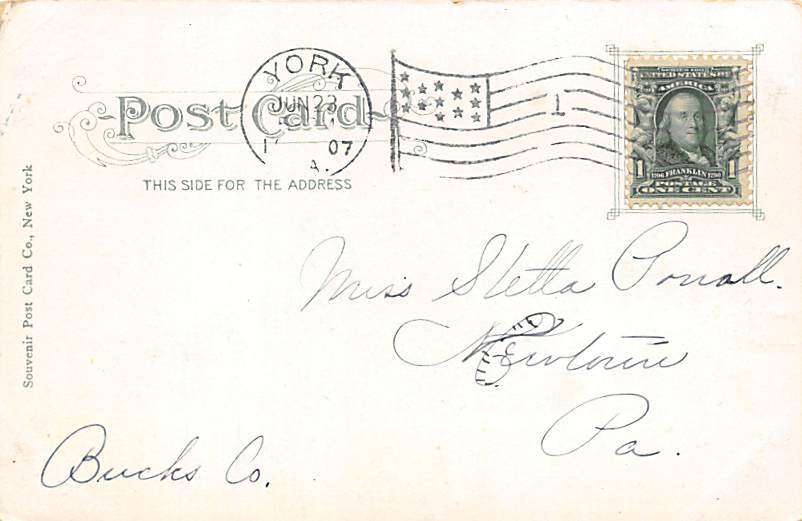 Post Card
THIS SIDE FOR THE ADDRESS
YORK
JUN 23
07
A.
1
UNITED STATES OF
AMERICA
1 1
1706 FRANKLIN 1790
POSTAGE
ONE CENT
Souvenir Post Card Co., New York
Miss Stella
Newtown
Pa.
Bucks Co.